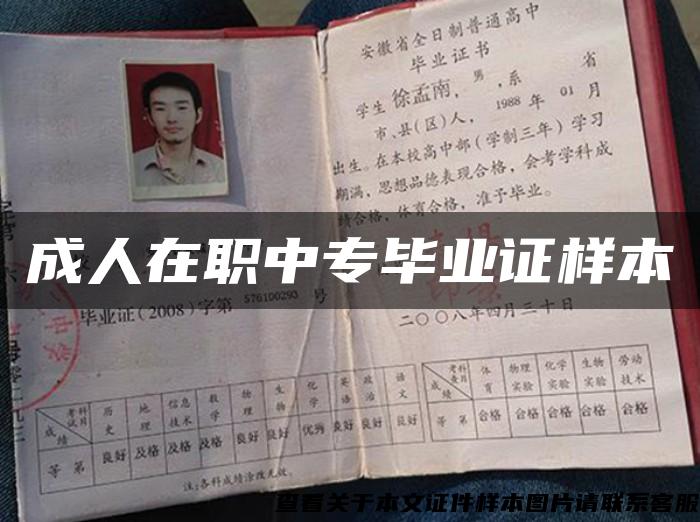 安徽省全日制普通高中
毕业证书
学生徐孟南，男，系 省
市、县(区)人，1988年01月
出生。在本校高中部(学制三年)学习
期满，思想品德表现合格，会考学科成
绩合格，体育合格，准予毕业。
成人在职中专毕业证样本
毕业证(2008)字第 576100293 号
二〇〇八年四月三十日
成绩 考试科目 历史 地理 信息技术 数学 物理 生物 化学 英语 政治 语文
等第 良好 及格 及格 及格 良好 良好 优秀 良好 良好 良好
注:各科成绩涂改无效。
成绩 考查科目 体育 物理实验 化学实验 生物实验 劳动技术
等第 合格 合格 合格 合格 合格
查看关于本文证件样本图片请联系客服